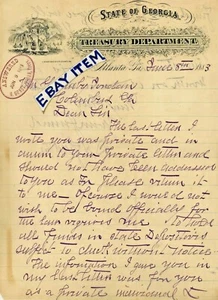 STATE OF GEORGIA
TREASURY DEPARTMENT
Atlanta, Ga. 8th
EBAY ITEM
Columbus Ga
Dear Sir
The last letter I
wrote you was private and in
to your private letter and
should not have been addressed
to you as please return it
to me I would not
wish to be bound officially for
the me To hold
all funds in state Depositories
subject to check without notice
The information I gave you in
my last letter was for you
as a private